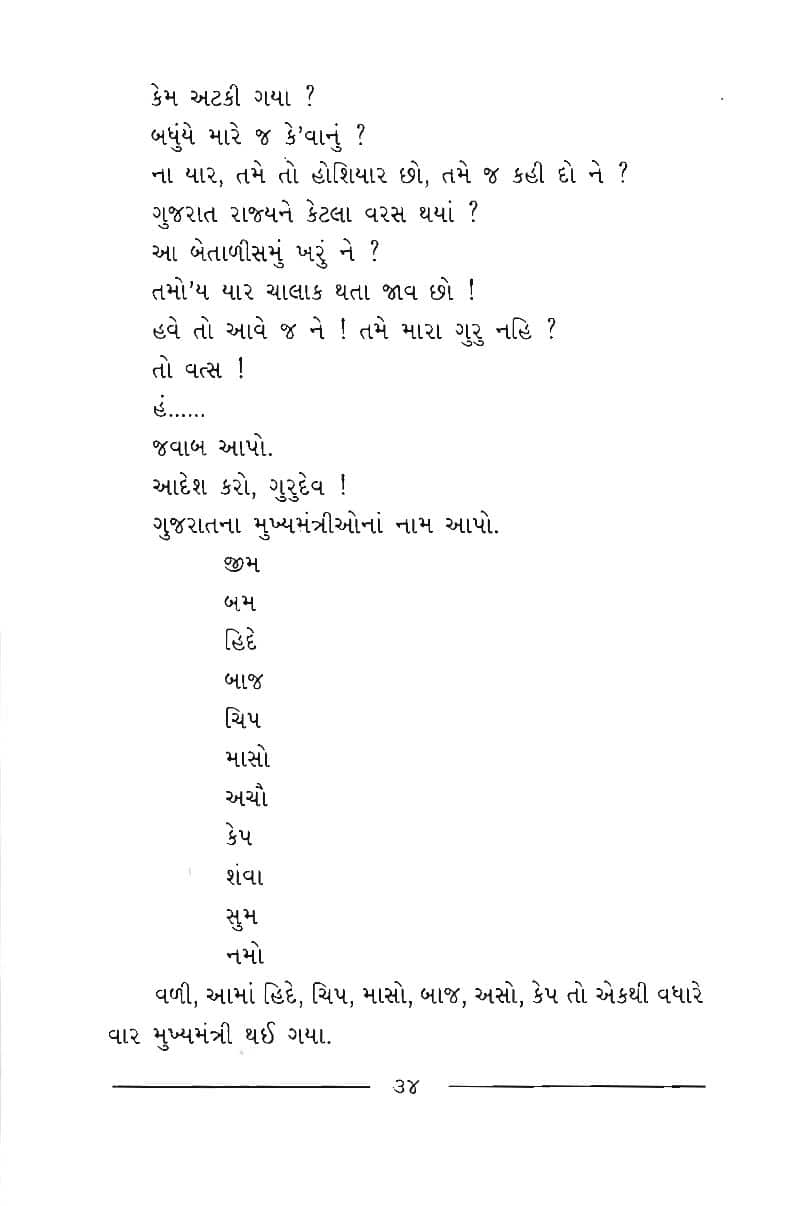 કેમ અટકી ગયા ?
બધુંયે મારે જ કે'વાનું ?
ના યાર, તમે તો હોશિયાર છો, તમે જ કહી દો ને ?
ગુજરાત રાજ્યને કેટલા વરસ થયાં ?
આ બેતાળીસમું ખરું ને ?
તમો'ય યાર ચાલાક થતા જાવ છો !
હવે તો આવે જ ને ! તમે મારા ગુરુ નહિ ?
તો વત્સ !
હં......
જવાબ આપો.
આદેશ કરો, ગુરુદેવ !
ગુજરાતના મુખ્યમંત્રીઓનાં નામ આપો.
જીમ
બમ
હિદે
બાજ
ચિપ
માસો
અચૌ
કેપ
શંવા
સુમ
નમો
વળી, આમાં હિદે, ચિપ, માસો, બાજ, અસો, કેપ તો એકથી વધારે
વાર મુખ્યમંત્રી થઈ ગયા.
૩૪